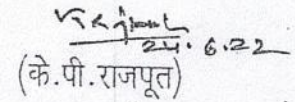 24.6.22
(के.पी.राजपूत)